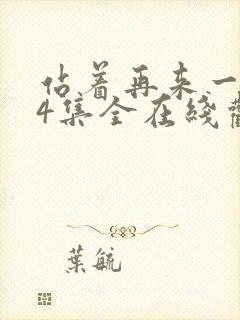 佔着再来一
4集全在綫
葉毓